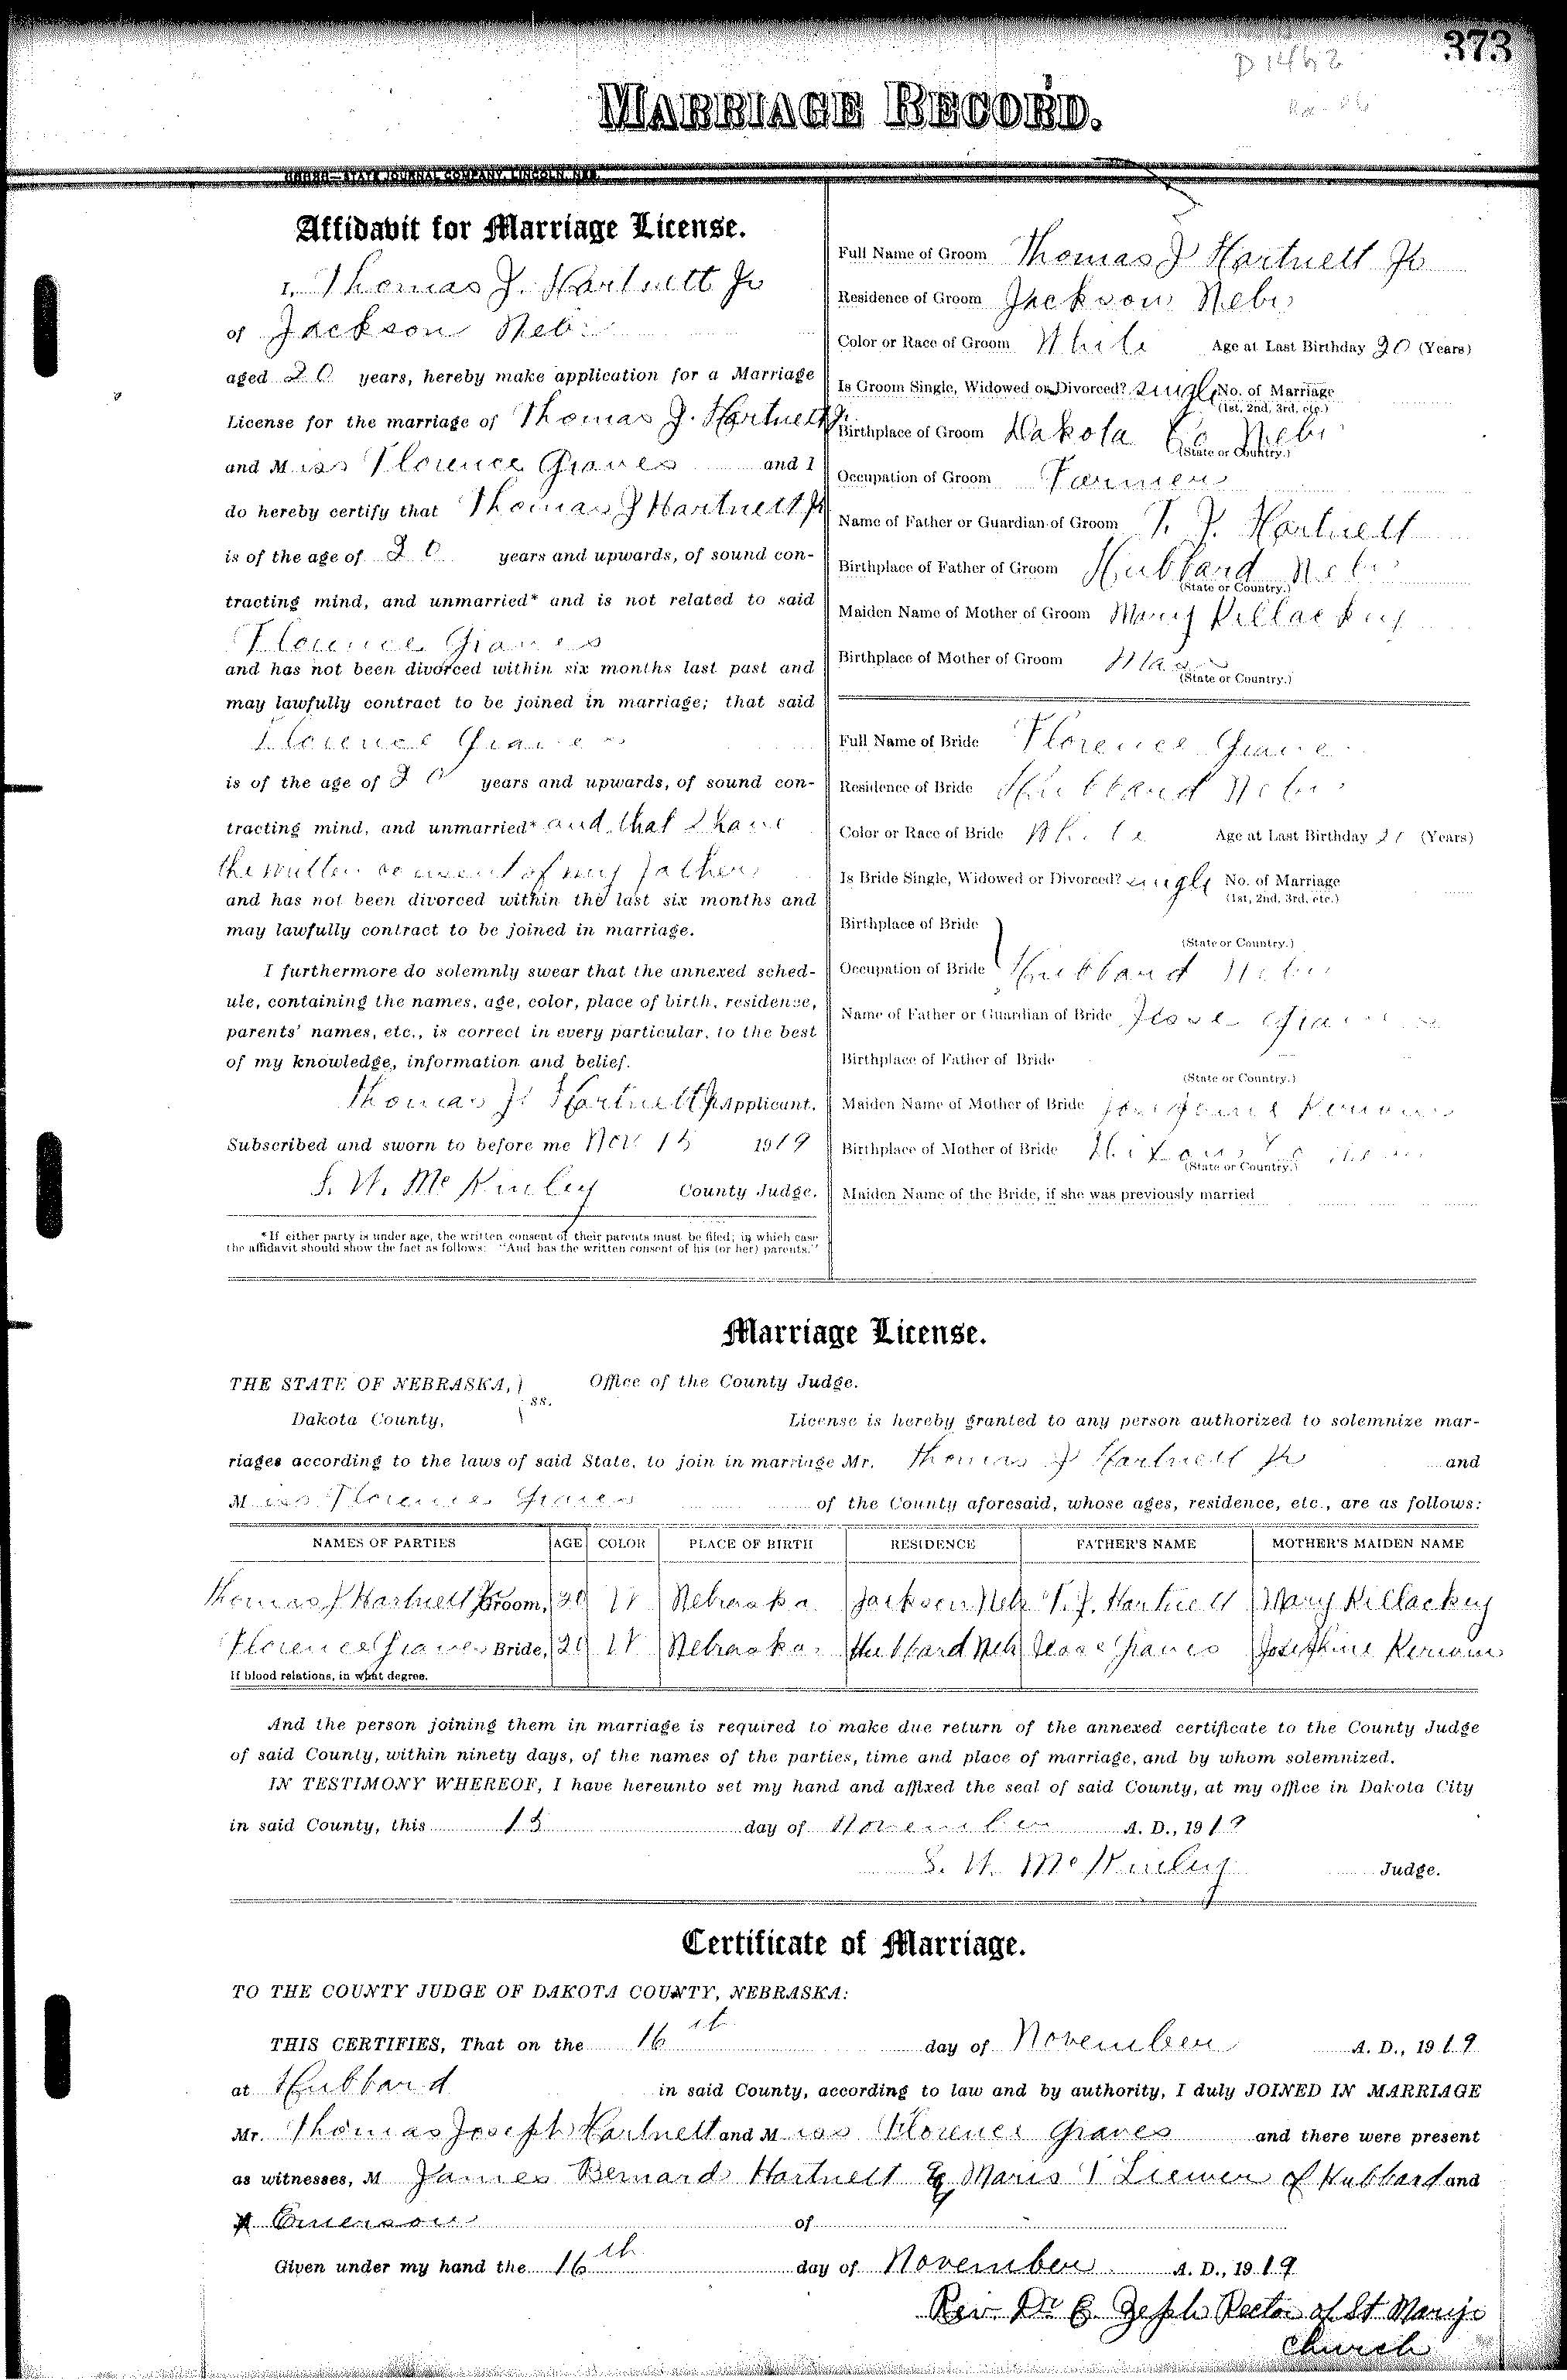 373
D 1462
MARRIAGE RECORD.
STATE JOURNAL COMPANY, LINCOLN, NEB.
Affidavit for Marriage License.
I, Thomas J. Hartnett Jr
of Jackson Nebr
aged 20 years, hereby make application for a Marriage
License for the marriage of Thomas J. Hartnett Jr
and Miss Florence Graves and I
do hereby certify that Thomas J Hartnett Jr
is of the age of 20 years and upwards, of sound con-
tracting mind, and unmarried* and is not related to said
Florence Graves
and has not been divorced within six months last past and
may lawfully contract to be joined in marriage; that said
Florence Graves
is of the age of 20 years and upwards, of sound con-
tracting mind, and unmarried* and that I have
the written consent of my father
and has not been divorced within the last six months and
may lawfully contract to be joined in marriage.
I furthermore do solemnly swear that the annexed sched-
ule, containing the names, age, color, place of birth, residence,
parents' names, etc., is correct in every particular, to the best
of my knowledge, information and belief.
Thomas J. Hartnett Jr Applicant.
Subscribed and sworn to before me Nov 15 1919
S. W. McKinley County Judge.
*If either party is under age, the written consent of their parents must be filed; in which case
the affidavit should show the fact as follows: "And has the written consent of his (or her) parents."
Full Name of Groom Thomas J Hartnett Jr
Residence of Groom Jackson Nebr
Color or Race of Groom White Age at Last Birthday 20 (Years)
Is Groom Single, Widowed or Divorced? Single No. of Marriage
(1st, 2nd, 3rd, etc.)
Birthplace of Groom Dakota Co Nebr
(State or Country.)
Occupation of Groom Farmer
Name of Father or Guardian of Groom T. J. Hartnett
Birthplace of Father of Groom Hubbard Nebr
(State or Country.)
Maiden Name of Mother of Groom Mary Killackey
Birthplace of Mother of Groom Mass
(State or Country.)
Full Name of Bride Florence Graves
Residence of Bride Hubbard Nebr
Color or Race of Bride White Age at Last Birthday (Years)
Is Bride Single, Widowed or Divorced? single No. of Marriage
(1st, 2nd, 3rd, etc.)
Birthplace of Bride
(State or Country.)
Occupation of Bride Hubbard Nebr
Name of Father or Guardian of Bride Jesse Graves
Birthplace of Father of Bride
(State or Country.)
Maiden Name of Mother of Bride Josephine
Birthplace of Mother of Bride
(State or Country.)
Maiden Name of the Bride, if she was previously married
Marriage License.
THE STATE OF NEBRASKA, } ss. Office of the County Judge.
Dakota County, License is hereby granted to any person authorized to solemnize mar-
riages according to the laws of said State, to join in marriage Mr. Thomas J Hartnett Jr and
Miss Florence Graves of the County aforesaid, whose ages, residence, etc., are as follows:
NAMES OF PARTIES AGE COLOR PLACE OF BIRTH RESIDENCE FATHER'S NAME MOTHER'S MAIDEN NAME
Thomas J Hartnett Jr Groom, 20 W Nebraska Jackson Neb T. J. Hartnett Mary Killackey
Florence Graves Bride, 20 W Nebraska Hubbard Neb Jesse Graves Josephine
If blood relations, in what degree.
And the person joining them in marriage is required to make due return of the annexed certificate to the County Judge
of said County, within ninety days, of the names of the parties, time and place of marriage, and by whom solemnized.
IN TESTIMONY WHEREOF, I have hereunto set my hand and affixed the seal of said County, at my office in Dakota City
in said County, this 15 day of November A. D., 1919
S. W. McKinley Judge.
Certificate of Marriage.
TO THE COUNTY JUDGE OF DAKOTA COUNTY, NEBRASKA:
THIS CERTIFIES, That on the 16th day of November A. D., 1919
at Hubbard in said County, according to law and by authority, I duly JOINED IN MARRIAGE
Mr. Thomas Joseph Hartnett and Miss Florence Graves and there were present
as witnesses, M James Bernard Hartnett & Marie V Liewer of Hubbard and
Emerson of
Given under my hand the 16th day of November A. D., 1919
Rev. Dr E. Zeph Rector of St Marys
church